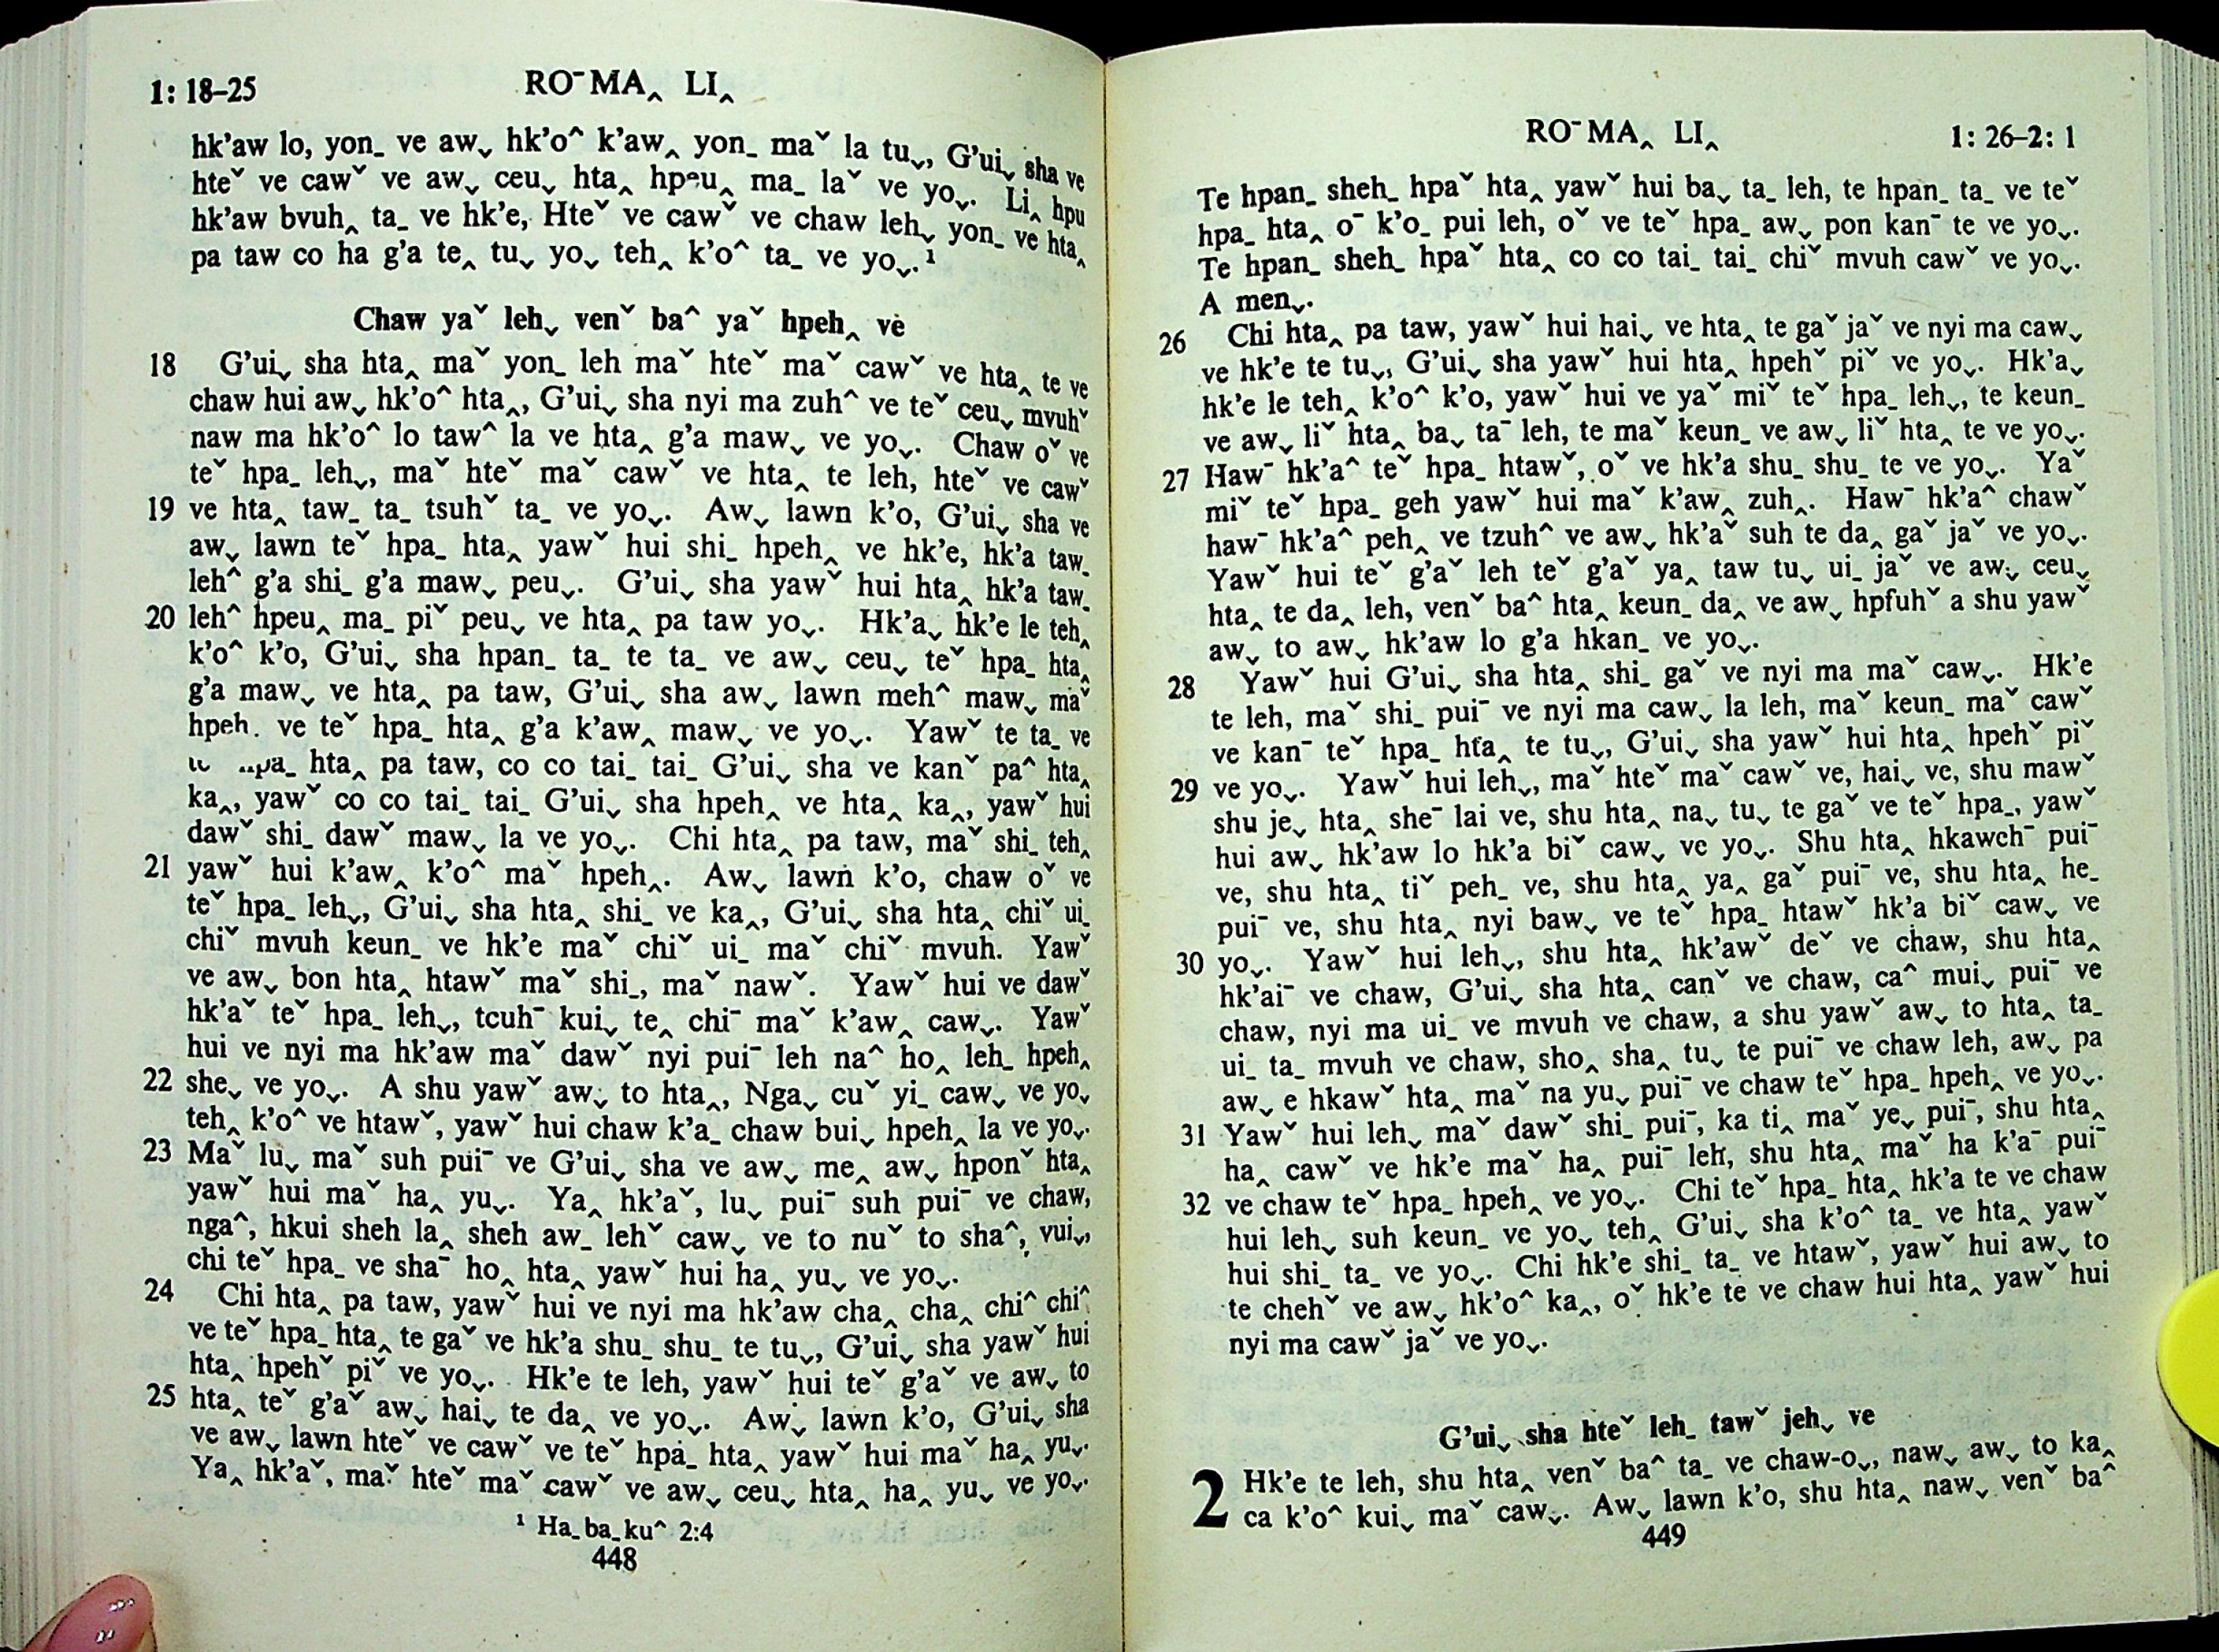 1: 18–25 RO¯MA‸ LI‸
hk'aw lo, yon_ ve awˬ hk'o^ k'aw‸ yon_ maˇ la tuˬ, G'uiˬ sha ve
hteˇ ve cawˇ ve awˬ ceuˬ hta‸ hpeu‸ ma_ laˇ ve yoˬ. Li‸ hpu
hk'aw bvuh‸ ta_ ve hk'e, Hteˇ ve cawˇ ve chaw lehˬ yon_ ve hta‸
pa taw co ha g'a te‸ tuˬ yoˬ teh‸ k'o^ ta_ ve yoˬ.¹
Chaw yaˇ lehˬ venˇ ba^ yaˇ hpeh‸ ve
18 G'uiˬ sha hta‸ maˇ yon_ leh maˇ hteˇ maˇ cawˇ ve hta‸ te ve
chaw hui awˬ hk'o^ hta‸, G'uiˬ sha nyi ma zuh^ ve teˇ ceuˬ mvuhˇ
naw ma hk'o^ lo taw^ la ve hta‸ g'a mawˬ ve yoˬ. Chaw oˇ ve
teˇ hpa_ lehˬ, maˇ hteˇ maˇ cawˇ ve hta‸ te leh, hteˇ ve cawˇ
19 ve hta‸ taw_ ta_ tsuhˇ ta_ ve yoˬ. Awˬ lawn k'o, G'uiˬ sha ve
awˬ lawn teˇ hpa_ hta‸ yawˇ hui shi_ hpeh‸ ve hk'e, hk'a taw_
leh^ g'a shi_ g'a mawˬ peuˬ. G'uiˬ sha yawˇ hui hta‸ hk'a taw_
20 leh^ hpeu‸ ma_ piˇ peuˬ ve hta‸ pa taw yoˬ. Hk'aˬ hk'e le teh‸
k'o^ k'o, G'uiˬ sha hpan_ ta_ te ta_ ve awˬ ceuˬ teˇ hpa_ hta‸
g'a mawˬ ve hta‸ pa taw, G'uiˬ sha awˬ lawn meh^ mawˬ maˇ
hpeh. ve teˇ hpa_ hta‸ g'a k'aw‸ mawˬ ve yoˬ. Yawˇ te ta_ ve
hta‸ pa taw, co co tai_ tai_ G'uiˬ sha ve kanˇ pa^ hta‸
ka‸, yawˇ co co tai_ tai_ G'uiˬ sha hpeh‸ ve hta‸ ka‸, yawˇ hui
dawˇ shi_ dawˇ mawˬ la ve yoˬ. Chi hta‸ pa taw, maˇ shi_ teh‸
21 yawˇ hui k'aw‸ k'o^ maˇ hpeh‸. Awˬ lawn k'o, chaw oˇ ve
teˇ hpa_ lehˬ, G'uiˬ sha hta‸ shi_ ve ka‸, G'uiˬ sha hta‸ chiˇ ui_
chiˇ mvuh keun_ ve hk'e maˇ chiˇ ui_ maˇ chiˇ mvuh. Yawˇ
ve awˬ bon hta‸ htawˇ maˇ shi_, maˇ nawˇ. Yawˇ hui ve dawˇ
hk'aˇ teˇ hpa_ lehˬ, tcuh¯ kuiˬ te‸ chi¯ maˇ k'aw‸ cawˬ. Yawˇ
hui ve nyi ma hk'aw maˇ dawˇ nyi pui¯ leh na^ ho‸ leh_ hpeh‸
22 sheˬ ve yoˬ. A shu yawˇ awˬ to hta‸, Ngaˬ cuˇ yi_ cawˬ ve yoˬ
teh‸ k'o^ ve htawˇ, yawˇ hui chaw k'a_ chaw buiˬ hpeh‸ la ve yoˬ.
23 Maˇ luˬ maˇ suh pui¯ ve G'uiˬ sha ve awˬ me‸ awˬ hponˇ hta‸
yawˇ hui maˇ ha‸ yuˬ. Ya‸ hk'aˇ, luˬ pui¯ suh pui¯ ve chaw,
nga^, hkui sheh la‸ sheh aw_ lehˇ cawˬ ve to nuˇ to sha^, vuiˬ,
chi teˇ hpa_ ve sha¯ ho‸ hta‸ yawˇ hui ha‸ yuˬ ve yoˬ.
24 Chi hta‸ pa taw, yawˇ hui ve nyi ma hk'aw cha‸ cha‸ chi^ chi^
ve teˇ hpa_ hta‸ te gaˇ ve hk'a shu_ shu_ te tuˬ, G'uiˬ sha yawˇ hui
hta‸ hpehˇ piˇ ve yoˬ. Hk'e te leh, yawˇ hui teˇ g'aˇ ve awˬ to
25 hta‸ teˇ g'aˇ awˬ haiˬ te da‸ ve yoˬ. Awˬ lawn k'o, G'uiˬ sha
ve awˬ lawn hteˇ ve cawˇ ve teˇ hpa_ hta‸ yawˇ hui maˇ ha‸ yuˬ.
Ya‸ hk'aˇ, maˇ hteˇ maˇ cawˇ ve awˬ ceuˬ hta‸ ha‸ yuˬ ve yoˬ.
¹ Ha_ ba_ ku^ 2:4
448
RO¯MA‸ LI‸ 1: 26–2: 1
Te hpan_ sheh_ hpaˇ hta‸ yawˇ hui baˬ ta_ leh, te hpan_ ta_ ve teˇ
hpa_ hta‸ o¯ k'o_ pui leh, oˇ ve teˇ hpa_ awˬ pon kan¯ te ve yoˬ.
Te hpan_ sheh_ hpaˇ hta‸ co co tai_ tai_ chiˇ mvuh cawˇ ve yoˬ.
A menˬ.
26 Chi hta‸ pa taw, yawˇ hui haiˬ ve hta‸ te gaˇ jaˇ ve nyi ma cawˬ
ve hk'e te tuˬ, G'uiˬ sha yawˇ hui hta‸ hpehˇ piˇ ve yoˬ. Hk'aˬ
hk'e le teh‸ k'o^ k'o, yawˇ hui ve yaˇ miˇ teˇ hpa_ lehˬ, te keun_
ve awˬ liˇ hta‸ baˬ ta¯ leh, te maˇ keun_ ve awˬ liˇ hta‸ te ve yoˬ.
27 Haw¯ hk'a^ teˇ hpa_ htawˇ, oˇ ve hk'a shu_ shu_ te ve yoˬ. Yaˇ
miˇ teˇ hpa_ geh yawˇ hui maˇ k'aw‸ zuh‸. Haw¯ hk'a^ chawˇ
haw¯ hk'a^ peh‸ ve tzuh^ ve awˬ hk'aˇ suh te da‸ gaˇ jaˇ ve yoˬ.
Yawˇ hui teˇ g'aˇ leh teˇ g'aˇ ya‸ taw tuˬ ui_ jaˇ ve awˬ ceuˬ
hta‸ te da‸ leh, venˇ ba^ hta‸ keun_ da‸ ve awˬ hpfuhˇ a shu yawˇ
awˬ to awˬ hk'aw lo g'a hkan_ ve yoˬ.
28 Yawˇ hui G'uiˬ sha hta‸ shi_ gaˇ ve nyi ma maˇ cawˬ. Hk'e
te leh, maˇ shi_ pui¯ ve nyi ma cawˬ la leh, maˇ keun_ maˇ cawˇ
ve kan¯ teˇ hpa_ hta‸ te tuˬ, G'uiˬ sha yawˇ hui hta‸ hpehˇ piˇ
29 ve yoˬ. Yawˇ hui lehˬ, maˇ hteˇ maˇ cawˇ ve, haiˬ ve, shu mawˇ
shu jeˬ hta‸ she¯ lai ve, shu hta‸ naˬ tuˬ te gaˇ ve teˇ hpa_, yawˇ
hui awˬ hk'aw lo hk'a biˇ cawˬ ve yoˬ. Shu hta‸ hkawch¯ pui¯
ve, shu hta‸ tiˇ peh_ ve, shu hta‸ ya‸ gaˇ pui¯ ve, shu hta‸ he_
pui¯ ve, shu hta‸ nyi bawˬ ve teˇ hpa_ htawˇ hk'a biˇ cawˬ ve
30 yoˬ. Yawˇ hui lehˬ, shu hta‸ hk'awˇ deˇ ve chaw, shu hta‸
hk'ai¯ ve chaw, G'uiˬ sha hta‸ canˇ ve chaw, ca^ muiˬ pui¯ ve
chaw, nyi ma ui_ ve mvuh ve chaw, a shu yawˇ awˬ to hta‸ ta_
ui_ ta_ mvuh ve chaw, sho‸ sha‸ tuˬ te pui¯ ve chaw leh, awˬ pa
awˬ e hkawˇ hta‸ maˇ na yuˬ pui¯ ve chaw teˇ hpa_ hpeh‸ ve yoˬ.
31 Yawˇ hui lehˬ maˇ dawˇ shi_ pui¯, ka ti‸ maˇ yeˬ pui¯, shu hta‸
ha‸ cawˇ ve hk'e maˇ ha‸ pui¯ leh, shu hta‸ maˇ ha k'a¯ pui¯
32 ve chaw teˇ hpa_ hpeh‸ ve yoˬ. Chi teˇ hpa_ hta‸ hk'a te ve chaw
hui lehˬ suh keun_ ve yoˬ teh‸ G'uiˬ sha k'o^ ta_ ve hta‸ yawˇ
hui shi_ ta_ ve yoˬ. Chi hk'e shi_ ta_ ve htawˇ, yawˇ hui awˬ to
te chehˇ ve awˬ hk'o^ ka‸, oˇ hk'e te ve chaw hui hta‸ yawˇ hui
nyi ma cawˇ jaˇ ve yoˬ.
G'uiˬ sha hteˇ leh_ tawˇ jehˬ ve
2 Hk'e te leh, shu hta‸ venˇ ba^ ta_ ve chaw-oˬ, nawˬ awˬ to ka‸
ca k'o^ kuiˬ maˇ cawˬ. Awˬ lawn k'o, shu hta‸ nawˬ venˇ ba^
449